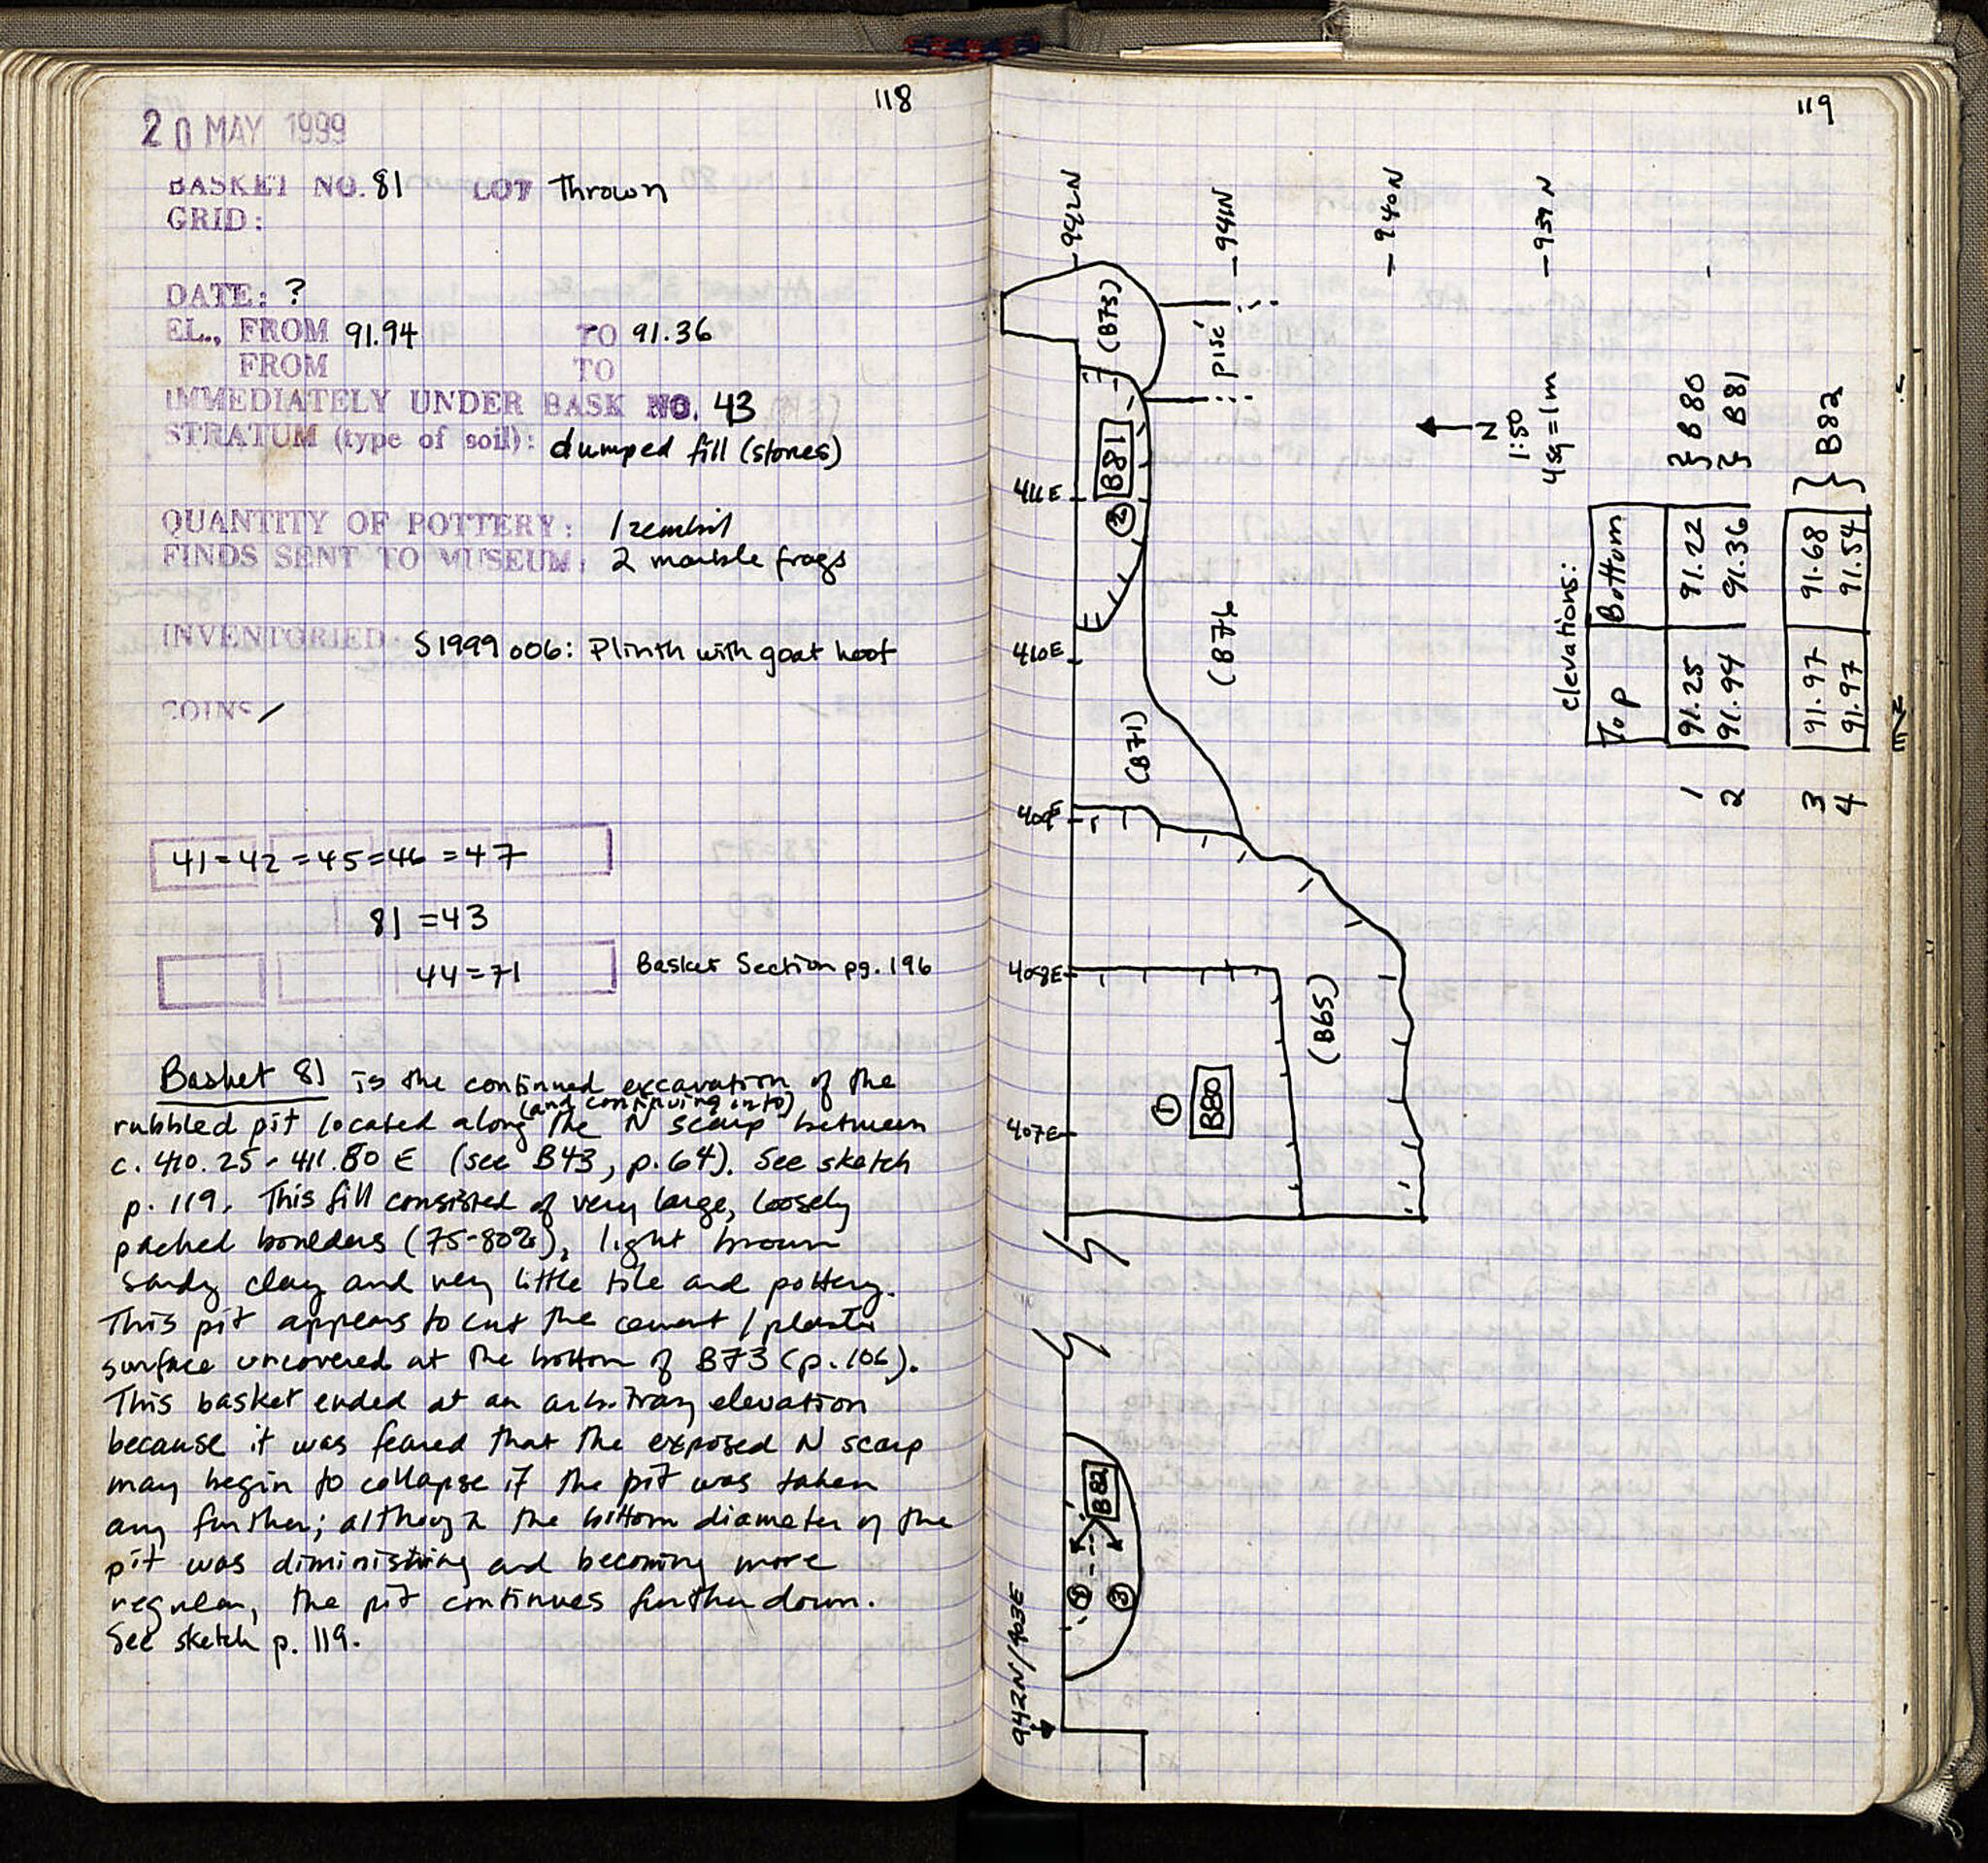 118
20 MAY 1999
BASKET NO. 81 LOT Thrown
GRID:
DATE: ?
EL., FROM 91.94 TO 91.36
FROM TO
IMMEDIATELY UNDER BASK NO. 43
STRATUM (type of soil): dumped fill (stones)
QUANTITY OF POTTERY: 1 zembil
FINDS SENT TO MUSEUM: 2 marble frags
INVENTORIED: S1999 006: Plinth with goat hoof
COINS /
41=42=45=46=47
81=43
44=71 Basket Section pg. 196
Basket 81 is the continued excavation of the
(and continuing into)
rubbled pit located along the N scarp between
c. 410.25-411.80 E (see B43, p.64). See sketch
p. 119. This fill consisted of very large, loosely
packed boulders (75-80%), light brown
sandy clay and very little tile and pottery.
This pit appears to cut the cement / plaster
surface uncovered at the bottom of B73 (p.106).
This basket ended at an arbitrary elevation
because it was feared that the exposed N scarp
may begin to collapse if the pit was taken
any further; although the bottom diameter of the
pit was diminishing and becoming more
regular, the pit continues further down.
See sketch p. 119.
119
942N
941N
940N
939N
(B73)
pisé
B81
2
411E
410E
(B76
(B71)
409E
408E
(B65)
1
B80
407E
B82
4
3
942N/403E
N
1:50
4sq=1m
elevations:
Top Bottom
1 91.25 91.22 } B80
2 91.94 91.36 } B81
3 91.97 91.68
4 91.97 91.54
} B82